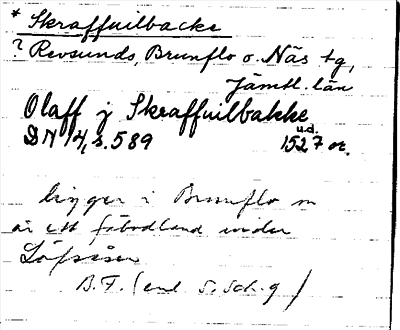 * Skraffuilbacke
? Revsunds, Brunflo o. Näs tg,
Jämtl. län
Olaff j Skraffuilbakke
u.d.
DN 14, s. 589 1527 or.
ligger i Brunflo sn
är ett fäbodland under
B.F. (enl S. Sch-g)